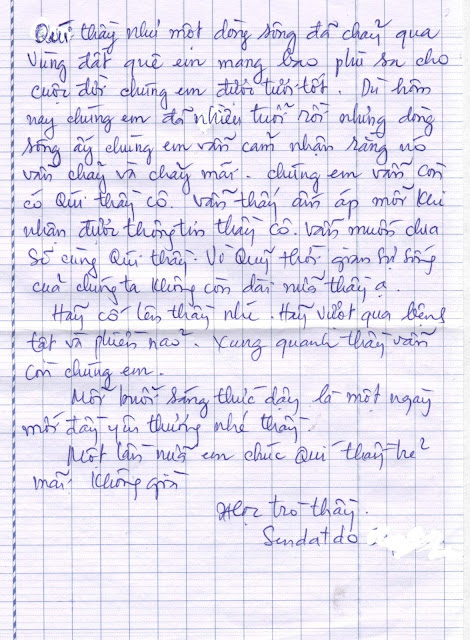 Quí thầy như một dòng sông đã chảy qua
vùng đất quê em mang bao phù sa cho
cuộc đời chúng em được tươi tốt. Dù hôm
nay chúng em đã nhiều tuổi rồi nhưng dòng
sông ấy chúng em vẫn cảm nhận rằng nó
vẫn chảy và chảy mãi. chúng em vẫn còn
có Quí thầy cô. vẫn thấy ấm áp mỗi khi
nhận được thông tin thầy cô. vẫn muốn chia
sẻ cùng Quí thầy. Vì Quỹ thời gian sự sống
của chúng ta không còn dài nữa thầy ạ.
Hãy cố lên thầy nhé. Hãy vượt qua bệnh
tật và phiền não. xung quanh thầy vẫn
còn chúng em.
Mỗi buổi sáng thức dậy là một ngày
mới đầy yêu thương nhé thầy.
Một lần nữa em chúc Quí thầy trẻ
mãi không già
Học trò thầy.
Sendatdo